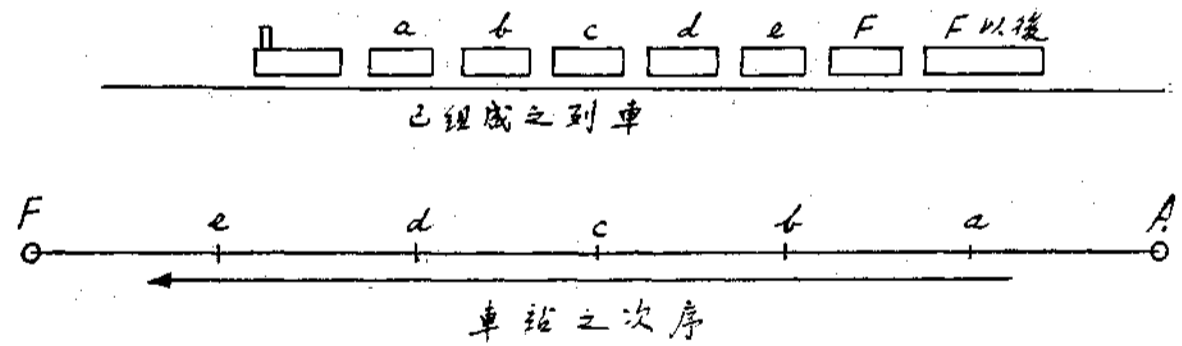 a b c d e F F以後
已組成之列車
F e d c b a A
車站之次序